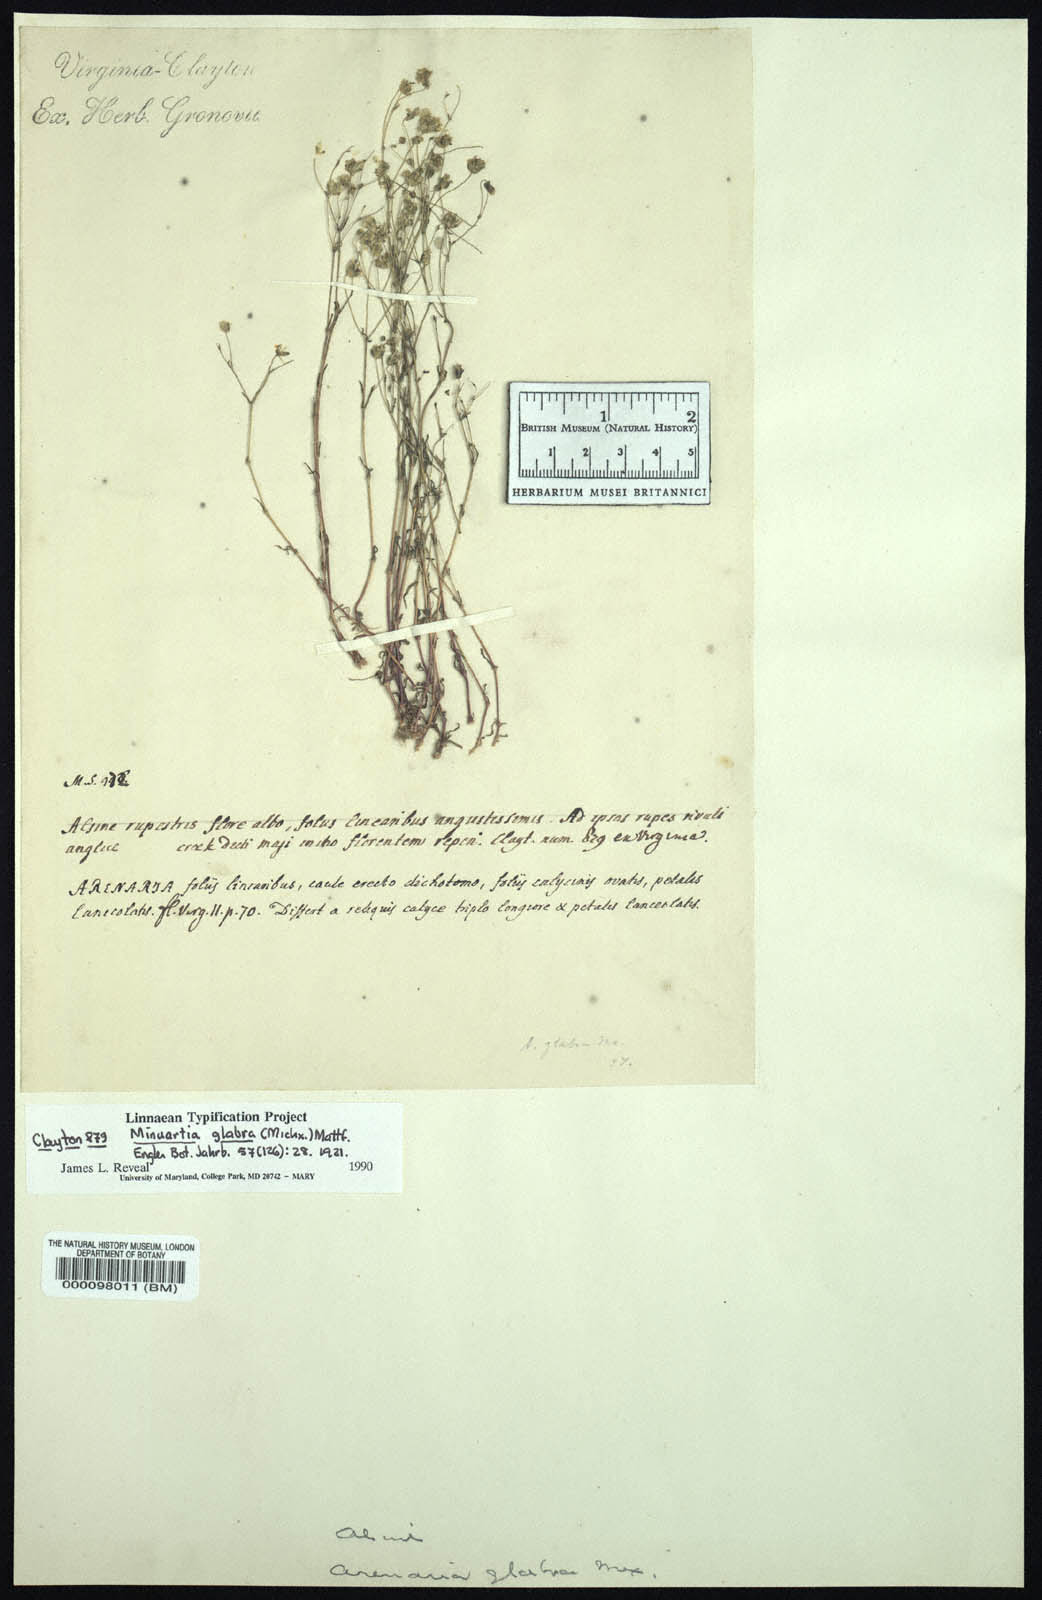 Virginia-Clayton
Ex. Herb. Gronovii
1 2
BRITISH MUSEUM (NATURAL HISTORY)
1 2 3 4 5
HERBARIUM MUSEI BRITANNICI
M.S.
Alsine rupestris flore albo, foliis linearibus angustissimis. Ad ipsas rupes rivuli
anglice creek dicti Maji initio florentem reperi. Clayt. num. 879 ex Virginia.
ARENARIA foliis linearibus, caule erecto dichotomo, foliis calycinis ovatis, petalis
lanceolatis. fl. Virg. II. p. 70. Differt a reliquis calyce triplo longiore & petalis lanceolatis.
A. glabra Mx.
Linnaean Typification Project
Clayton 879 Minuartia glabra (Michx.) Mattf.
Engler Bot. Jahrb. 57(126): 28. 1921.
James L. Reveal 1990
University of Maryland, College Park, MD 20742 – MARY
THE NATURAL HISTORY MUSEUM, LONDON
DEPARTMENT OF BOTANY
000098011 (BM)
Arenaria glabra Mx.